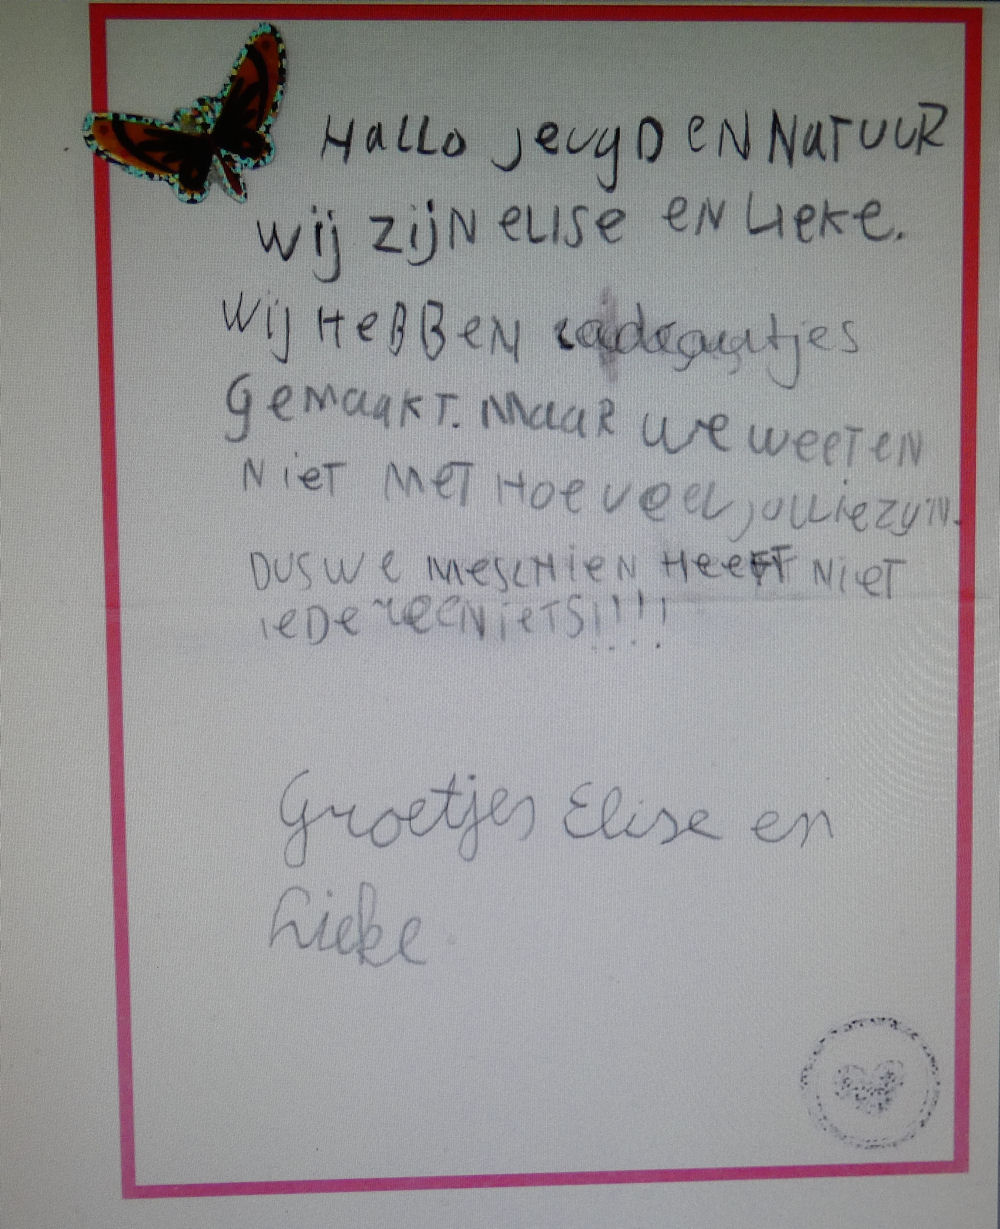 Hallo jeugd en Natuur
wij zijn elise en Lieke.
wij hebben cadeautjes
gemaakt. Maar we weeten
niet met hoe veel jullie zijn.
Dus we meschien heeft niet
iedereen iets!!!!
Groetjes Elise en
Lieke